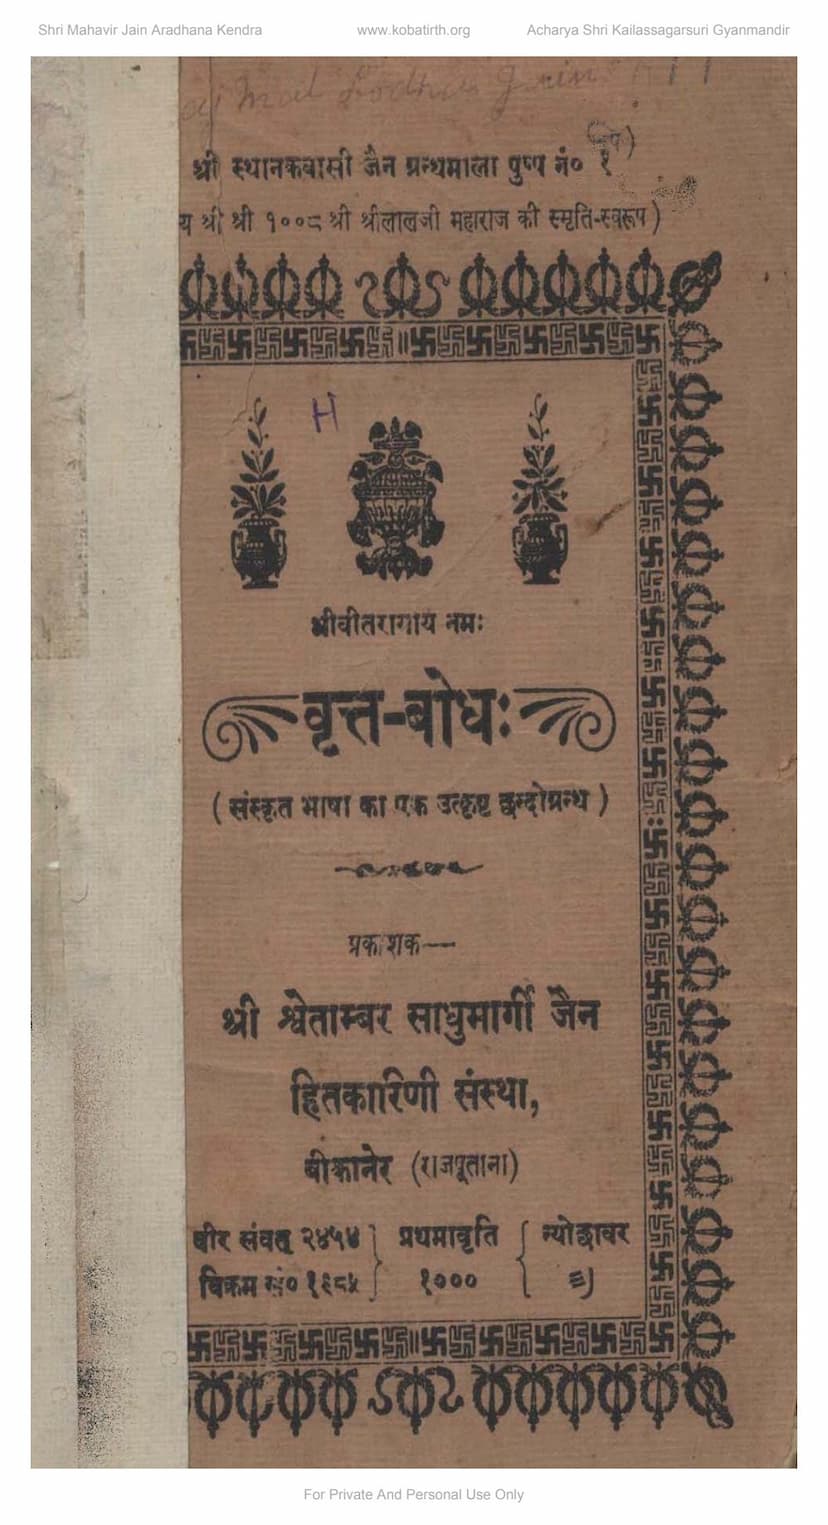 Shri Mahavir Jain Aradhana Kendra www.kobatirth.org Acharya Shri Kailassagarsuri Gyanmandir
श्री स्थानकवासी जैन ग्रन्थमाला पुष्प नं० १
य श्री श्री १००८ श्री श्रीलालजी महाराज की स्मृति-स्वरूप )
H
श्रीवीतरागाय नमः
वृत्त-बोधः
( संस्कृत भाषा का एक उत्कृष्ट छन्दोग्रन्थ )
प्रकाशक—
श्री श्वेताम्बर साधुमार्गी जैन
हितकारिणी संस्था,
बीकानेर (राजपूताना)
वीर संवत् २४५४ } प्रथमावृति { न्योछावर
विक्रम सं० १९८५ १०००
For Private And Personal Use Only